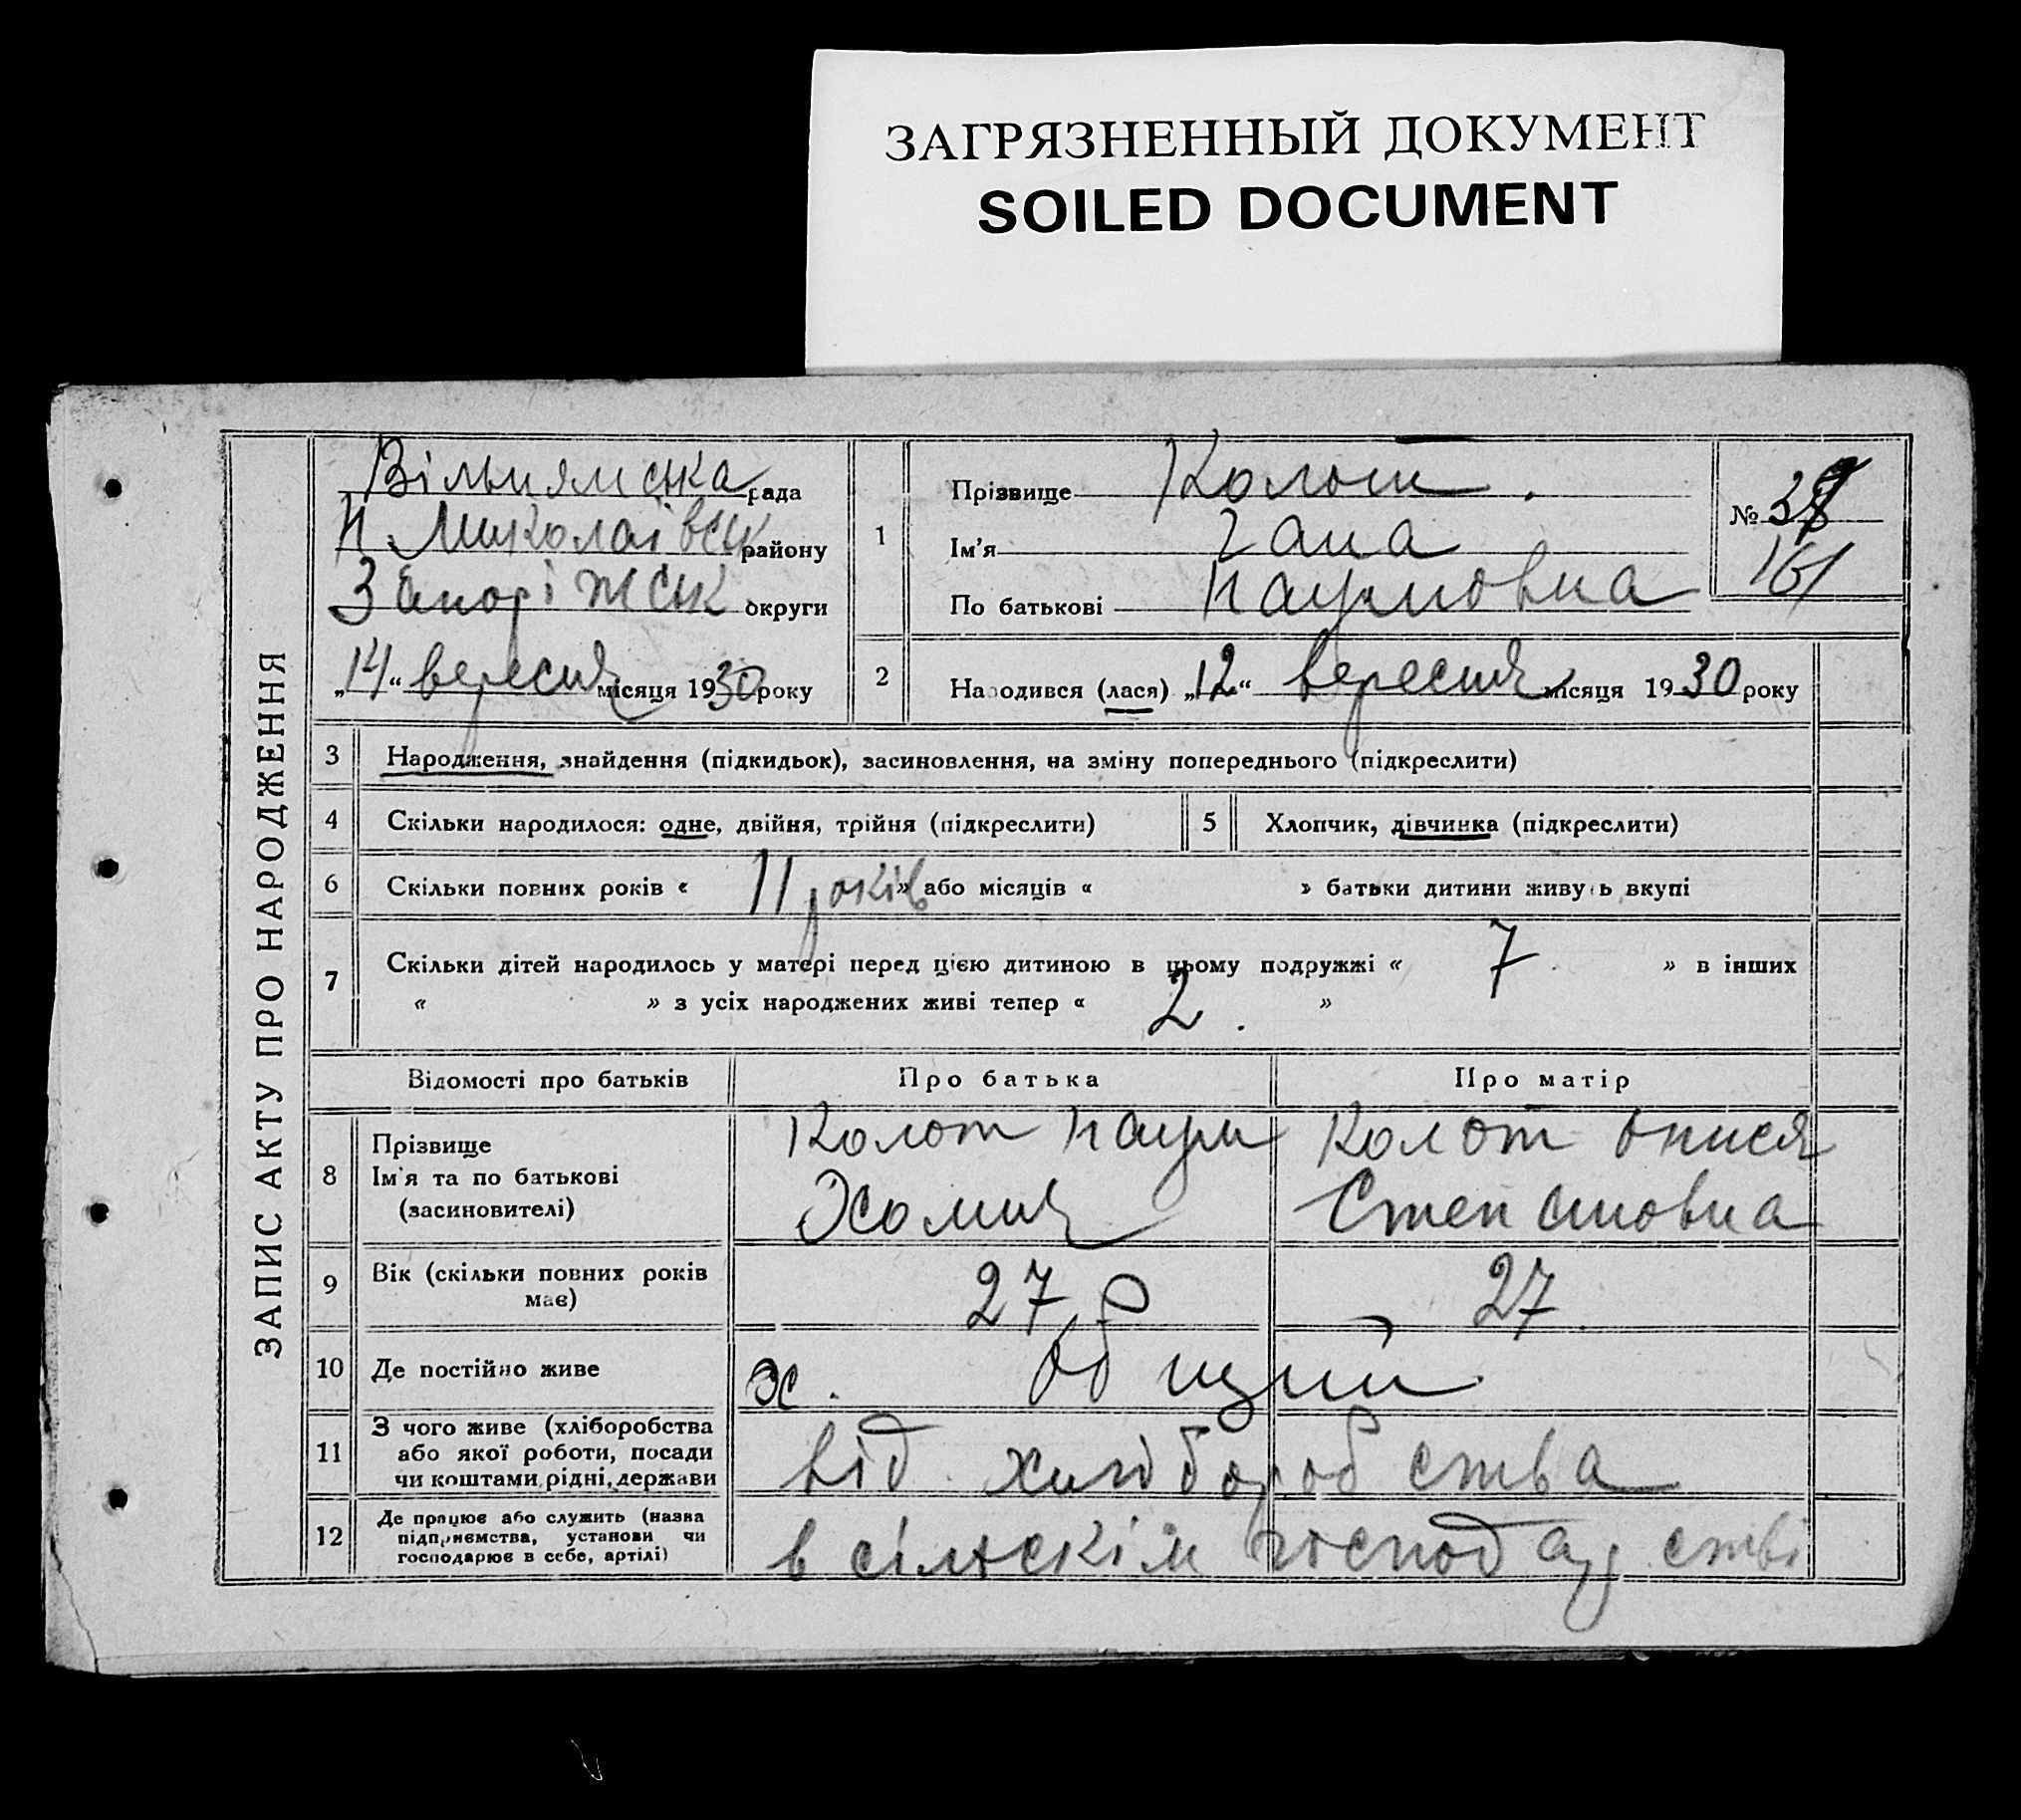 ЗАГРЯЗНЕННЫЙ ДОКУМЕНТ
SOILED DOCUMENT
ЗАПИС АКТУ ПРО НАРОДЖЕННЯ
Вільнянська рада
Н Миколаївськ району
Запоріжськ округи
„14“ вересня місяця 1930 року
1
Прізвище Колот.
Ім'я Гана
По батькові Наумовна
№ 38
161
2 Народився (лася) „12“ вересня місяця 1930 року
3 Народження, знайдення (підкидьок), засиновлення, на зміну попереднього (підкреслити)
4 Скільки народилося: одне, двійня, трійня (підкреслити) 5 Хлопчик, дівчинка (підкреслити)
6 Скільки повних років « 11 років » або місяців « » батьки дитини живуть вкупі
7 Скільки дітей народилось у матері перед цією дитиною в цьому подружжі « 7 » в інших
« » з усіх народжених живі тепер « 2. »
Відомості про батьків Про батька Про матір
8 Прізвище
Ім'я та по батькові
(засиновителі)
Колот Наум
Хомич
Колот Онися
Степановна
9 Вік (скільки повних років має) 27 27
10 Де постійно живе х.
11 З чого живе (хліборобства
або якої роботи, посади
чи коштами рідні, держави
від хлідборобства
12 Де працює або служить (назва
підприємства, установи чи
господарює в себе, артілі)
в сільскім господарстві